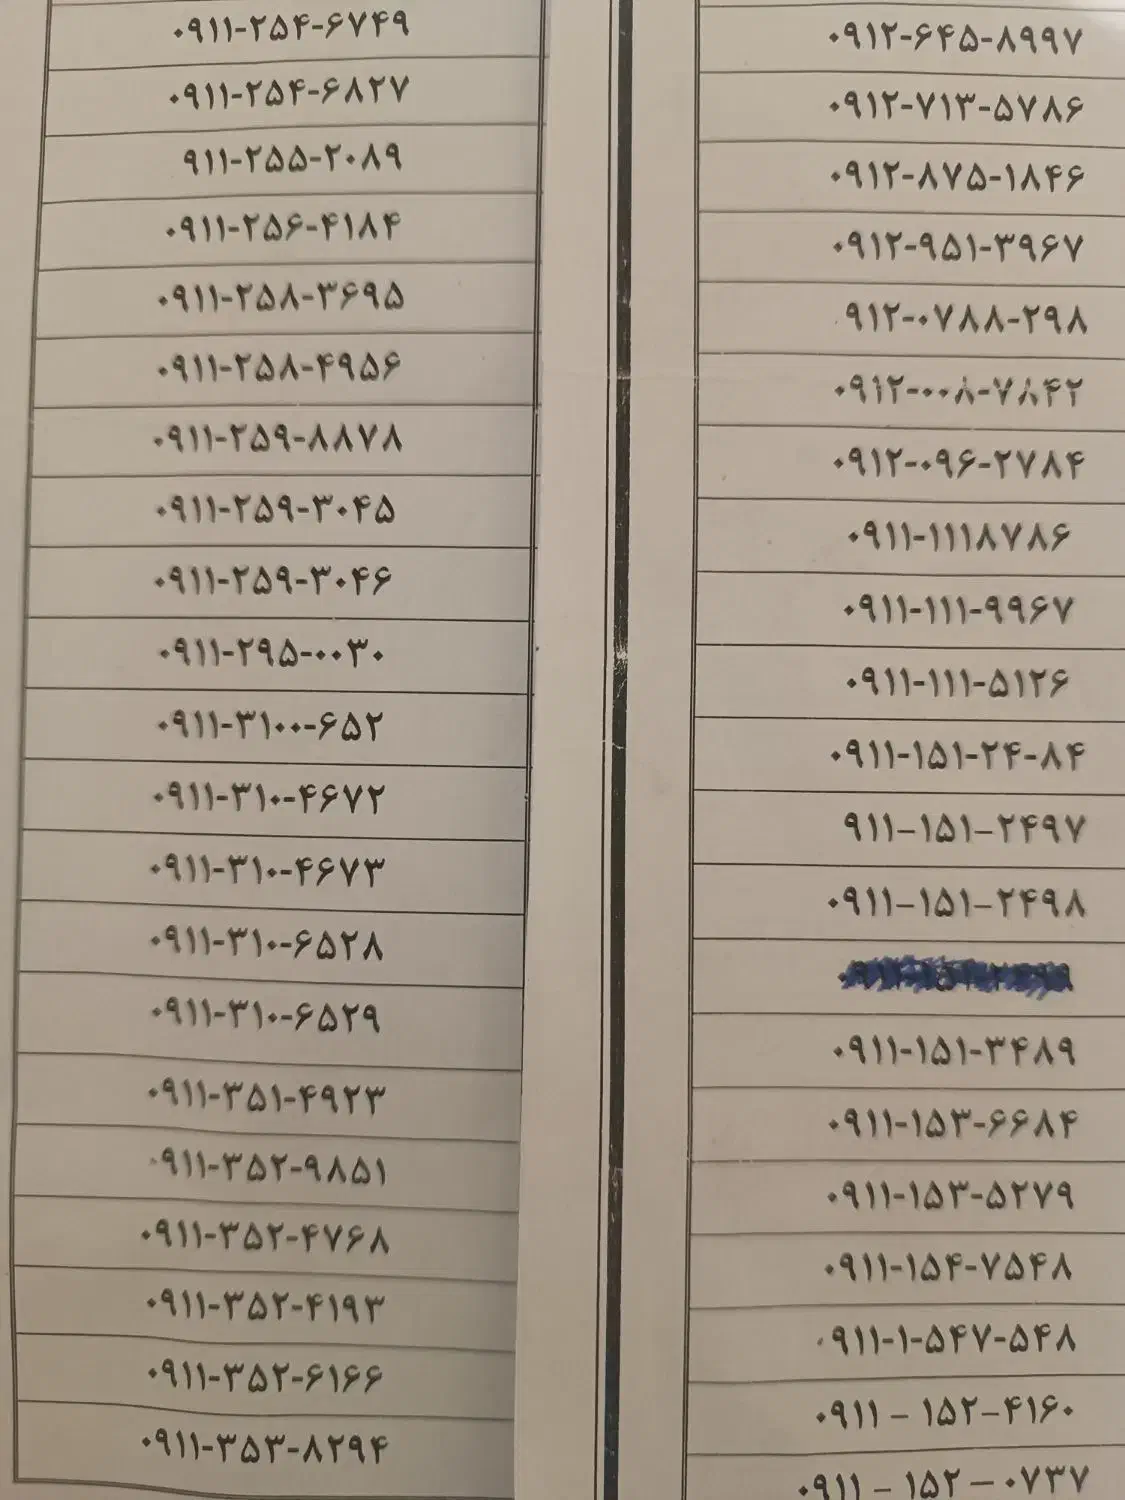 ۰۹۱۱-۲۵۴-۶۷۴۹
۰۹۱۱-۲۵۴-۶۸۲۷
۹۱۱-۲۵۵-۲۰۸۹
۰۹۱۱-۲۵۶-۴۱۸۴
۰۹۱۱-۲۵۸-۳۶۹۵
۰۹۱۱-۲۵۸-۴۹۵۶
۰۹۱۱-۲۵۹-۸۸۷۸
۰۹۱۱-۲۵۹-۳۰۴۵
۰۹۱۱-۲۵۹-۳۰۴۶
۰۹۱۱-۲۹۵-۰۰۳۰
۰۹۱۱-۳۱۰۰-۶۵۲
۰۹۱۱-۳۱۰-۴۶۷۲
۰۹۱۱-۳۱۰-۴۶۷۳
۰۹۱۱-۳۱۰-۶۵۲۸
۰۹۱۱-۳۱۰-۶۵۲۹
۰۹۱۱-۳۵۱-۴۹۲۳
۰۹۱۱-۳۵۲-۹۸۵۱
۰۹۱۱-۳۵۲-۴۷۶۸
۰۹۱۱-۳۵۲-۴۱۹۳
۰۹۱۱-۳۵۲-۶۱۶۶
۰۹۱۱-۳۵۳-۸۲۹۴
۰۹۱۲-۶۴۵-۸۹۹۷
۰۹۱۲-۷۱۳-۵۷۸۶
۰۹۱۲-۸۷۵-۱۸۴۶
۰۹۱۲-۹۵۱-۳۹۶۷
۹۱۲-۰۷۸۸-۲۹۸
۰۹۱۲-۰۰۸-۷۸۴۲
۰۹۱۲-۰۹۶-۲۷۸۴
۰۹۱۱-۱۱۱۸۷۸۶
۰۹۱۱-۱۱۱-۹۹۶۷
۰۹۱۱-۱۱۱-۵۱۲۶
۰۹۱۱-۱۵۱-۲۴-۸۴
۹۱۱-۱۵۱-۲۴۹۷
۰۹۱۱-۱۵۱-۲۴۹۸
۰۹۱۱-۱۵۱-۳۴۸۹
۰۹۱۱-۱۵۳-۶۶۸۴
۰۹۱۱-۱۵۳-۵۲۷۹
۰۹۱۱-۱۵۴-۷۵۴۸
۰۹۱۱-۱-۵۴۷-۵۴۸
۰۹۱۱ - ۱۵۲-۴۱۶۰
۰۹۱۱ - ۱۵۲ - ۰۷۳۷